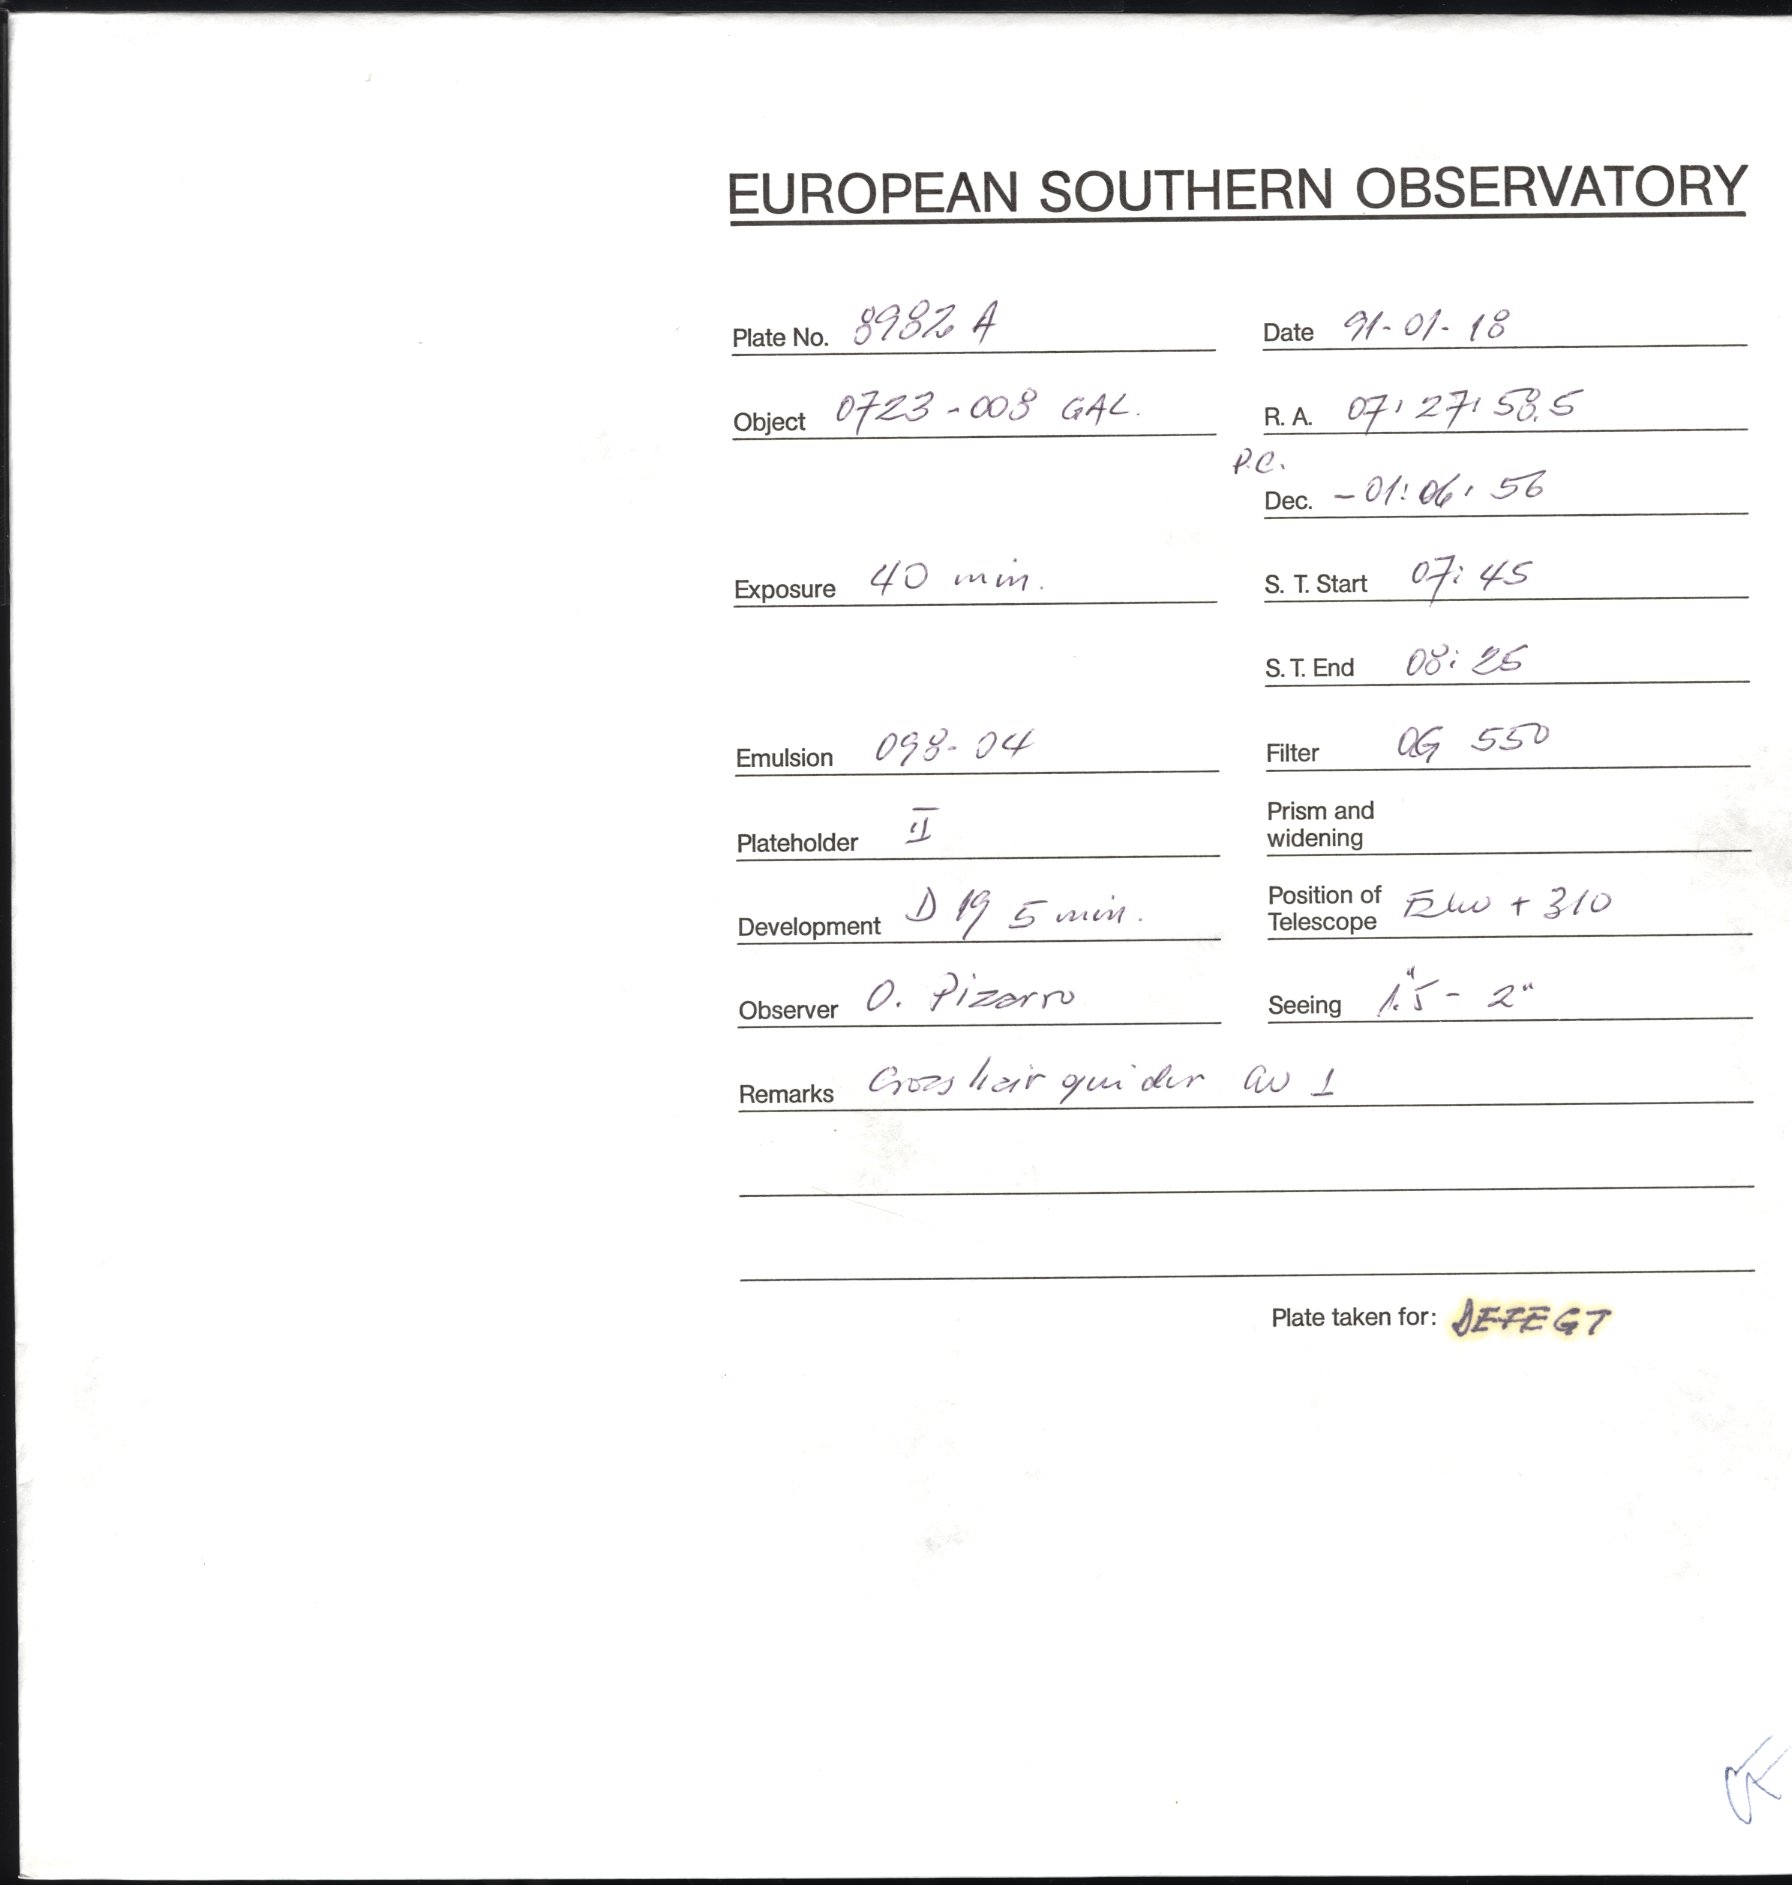 EUROPEAN SOUTHERN OBSERVATORY
Plate No. 8982 A
Date 91-01-18
Object 0723-008 GAL.
R. A. 07: 27: 58.5
P.C.
Dec. -01: 06: 56
Exposure 40 min.
S. T. Start 07: 45
S. T. End 08: 25
Emulsion 098-04
Filter OG 550
Plateholder II
Prism and
widening
Development D 19 5 min.
Position of
Telescope + 310
Observer O. Pizarro
Seeing 1."5 - 2"
Remarks Cross hair guider 1
Plate taken for: DEFEGT